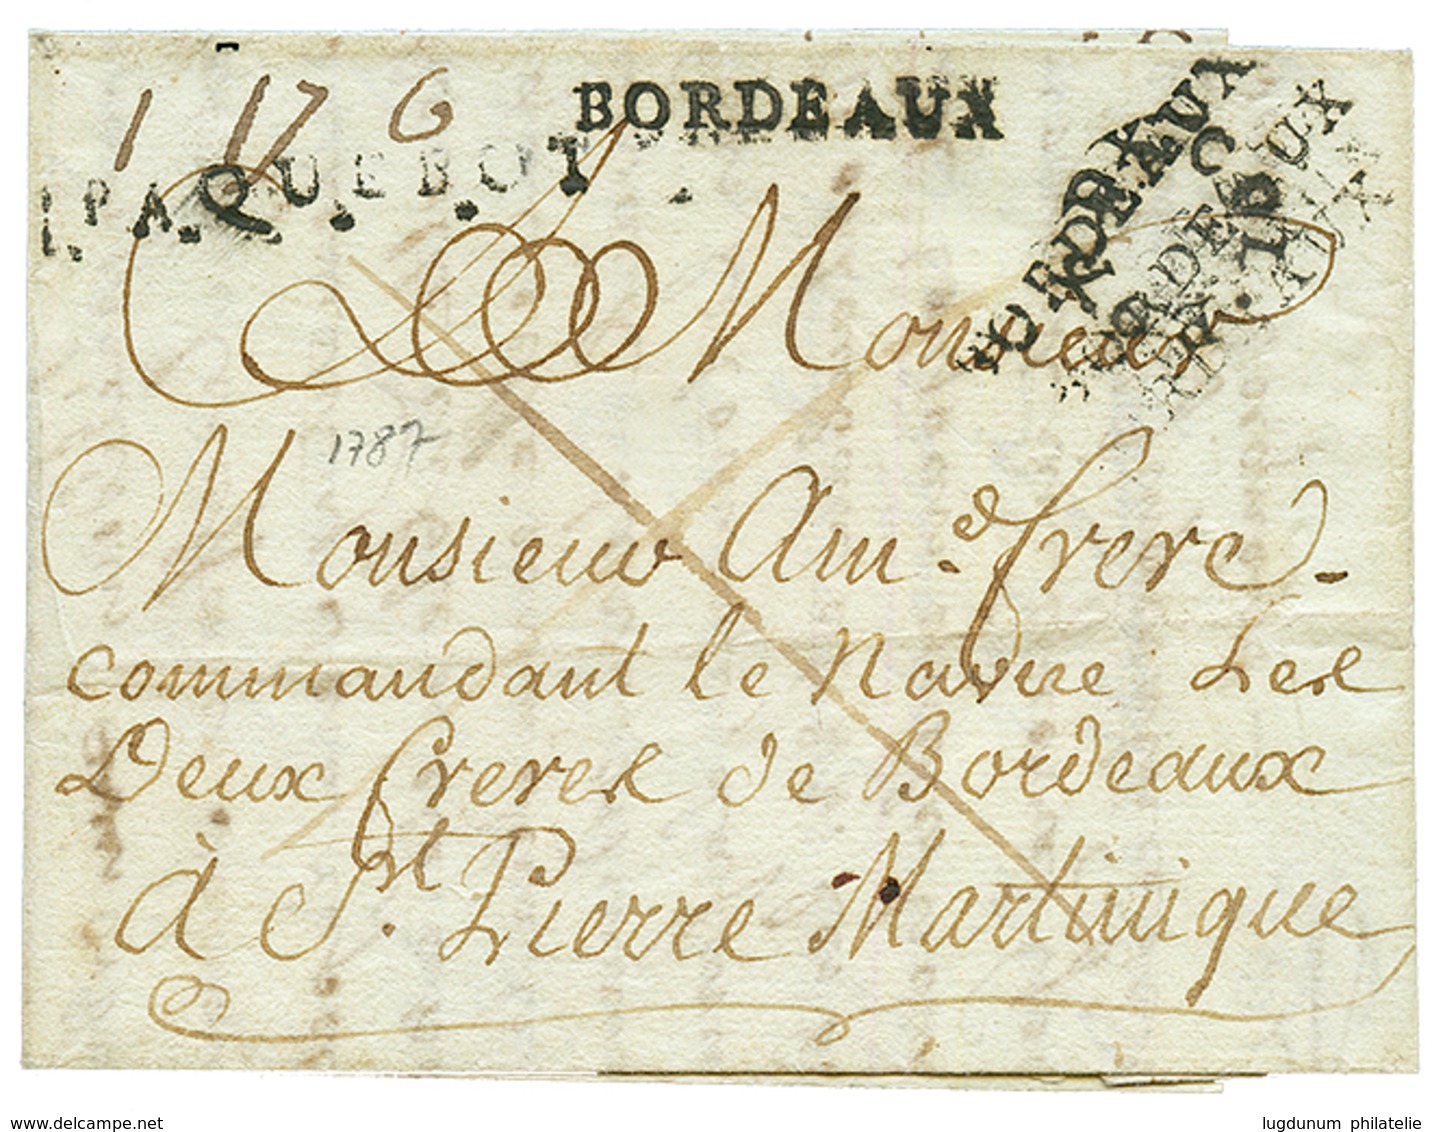 1 17 6
BORDEAUX
PAQUEBOT
BORDEAUX
Monsieur
1787
Monsieur Am.é frere-
commandant le Navire Les
Deux freres de Bordeaux
à St. Pierre Martinique
www.delcampe.net
lugdunum philatelie